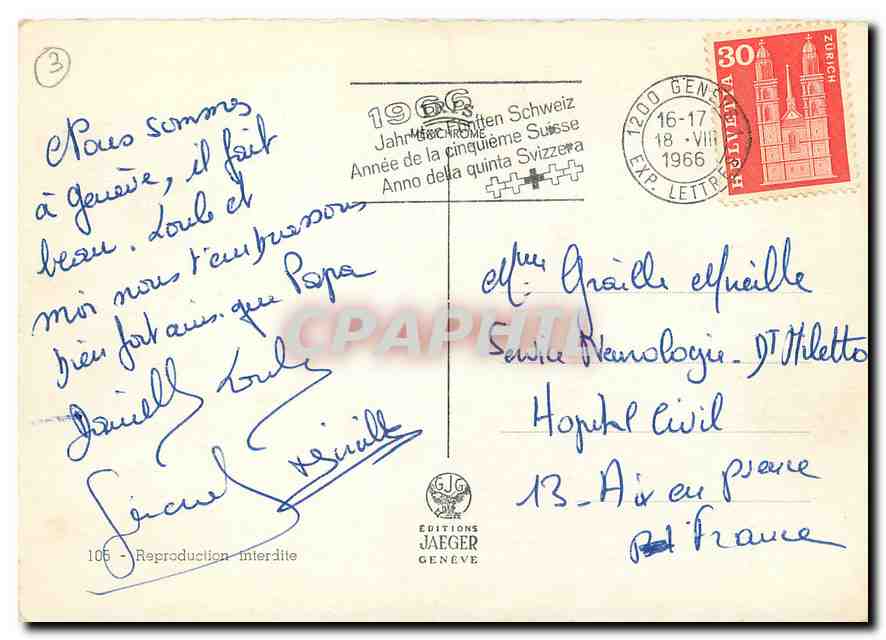 3
Nous sommes
à Genève, il fait
beau. Loule et
moi nous t'embrassons
bien fort ainsi que Papa
Danielle Loule
1966
Jahr der Fünften Schweiz
Année de la cinquième Suisse
Anno della quinta Svizzera
1200 GENÈVE
16-17
18.VIII
1966
EXP. LETTRES
30
HELVETIA
ZÜRICH
Mme Graille Mireille
Service Neurologie - Dr Miletto
Hopital Civil
13 - Aix en Provence
France
CPAPHIL
GJG
ÉDITIONS
JAEGER
GENÈVE
105 - Reproduction interdite